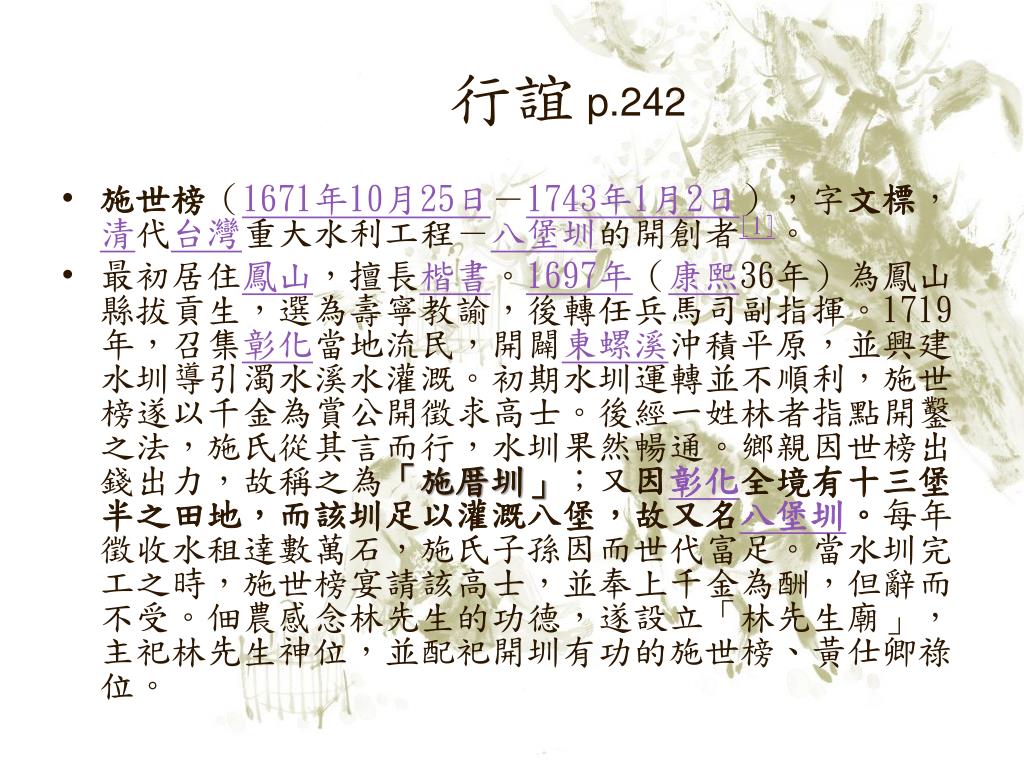 行誼 p.242
• 施世榜（1671年10月25日－1743年1月2日），字文標，
清代台灣重大水利工程－八堡圳的開創者[1]。
• 最初居住鳳山，擅長楷書。1697年（康熙36年）為鳳山
縣拔貢生，選為壽寧教諭，後轉任兵馬司副指揮。1719
年，召集彰化當地流民，開闢東螺溪沖積平原，並興建
水圳導引濁水溪水灌溉。初期水圳運轉並不順利，施世
榜遂以千金為賞公開徵求高士。後經一姓林者指點開鑿
之法，施氏從其言而行，水圳果然暢通。鄉親因世榜出
錢出力，故稱之為「施厝圳」；又因彰化全境有十三堡
半之田地，而該圳足以灌溉八堡，故又名八堡圳。每年
徵收水租達數萬石，施氏子孫因而世代富足。當水圳完
工之時，施世榜宴請該高士，並奉上千金為酬，但辭而
不受。佃農感念林先生的功德，遂設立「林先生廟」，
主祀林先生神位，並配祀開圳有功的施世榜、黃仕卿祿
位。